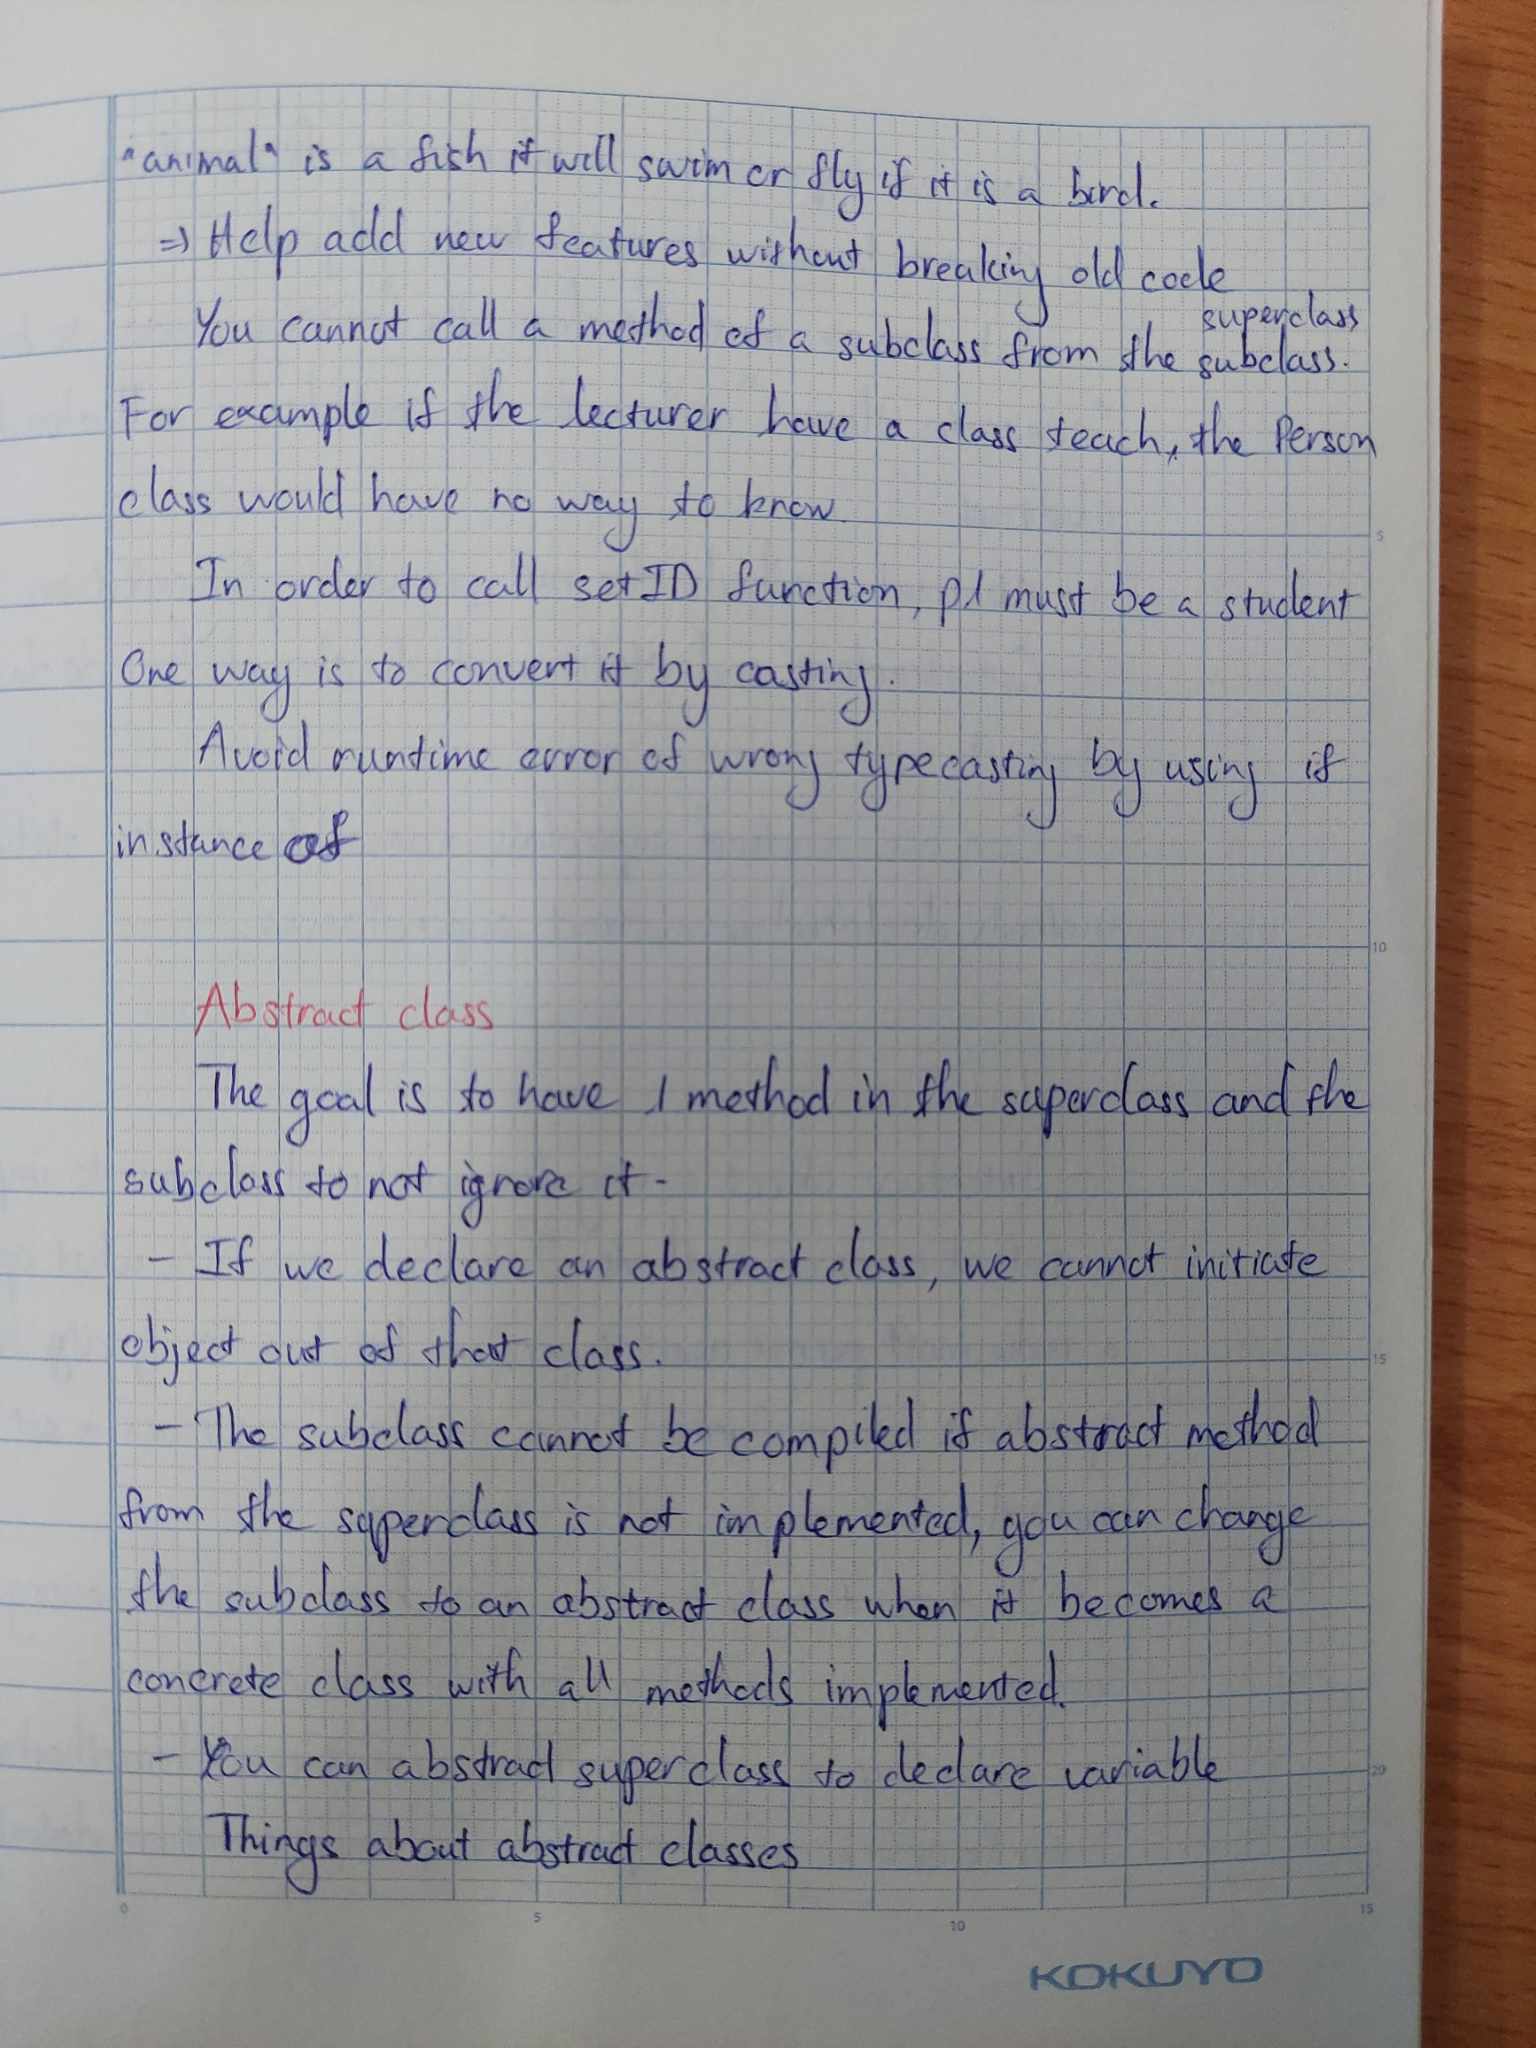 "animal" is a fish it will swim or fly if it is a bird.
=> Help add new features without breaking old code
superclass
You cannot call a method of a subclass from the subclass.
For example if the lecturer have a class teach, the Person
class would have no way to know.
In order to call setID function, p1 must be a student
One way is to convert it by casting.
Avoid runtime error of wrong typecasting by using if
instance of
10
Abstract class
The goal is to have 1 method in the superclass and the
subclass to not ignore it.
- If we declare an abstract class, we cannot initiate
object out of that class.
15
- The subclass cannot be compiled if abstract method
from the superclass is not implemented, you can change
the subclass to an abstract class when it becomes a
concrete class with all methods implemented.
- You can abstract superclass to declare variable
20
Things about abstract classes
0 5 10 15
KOKUYO